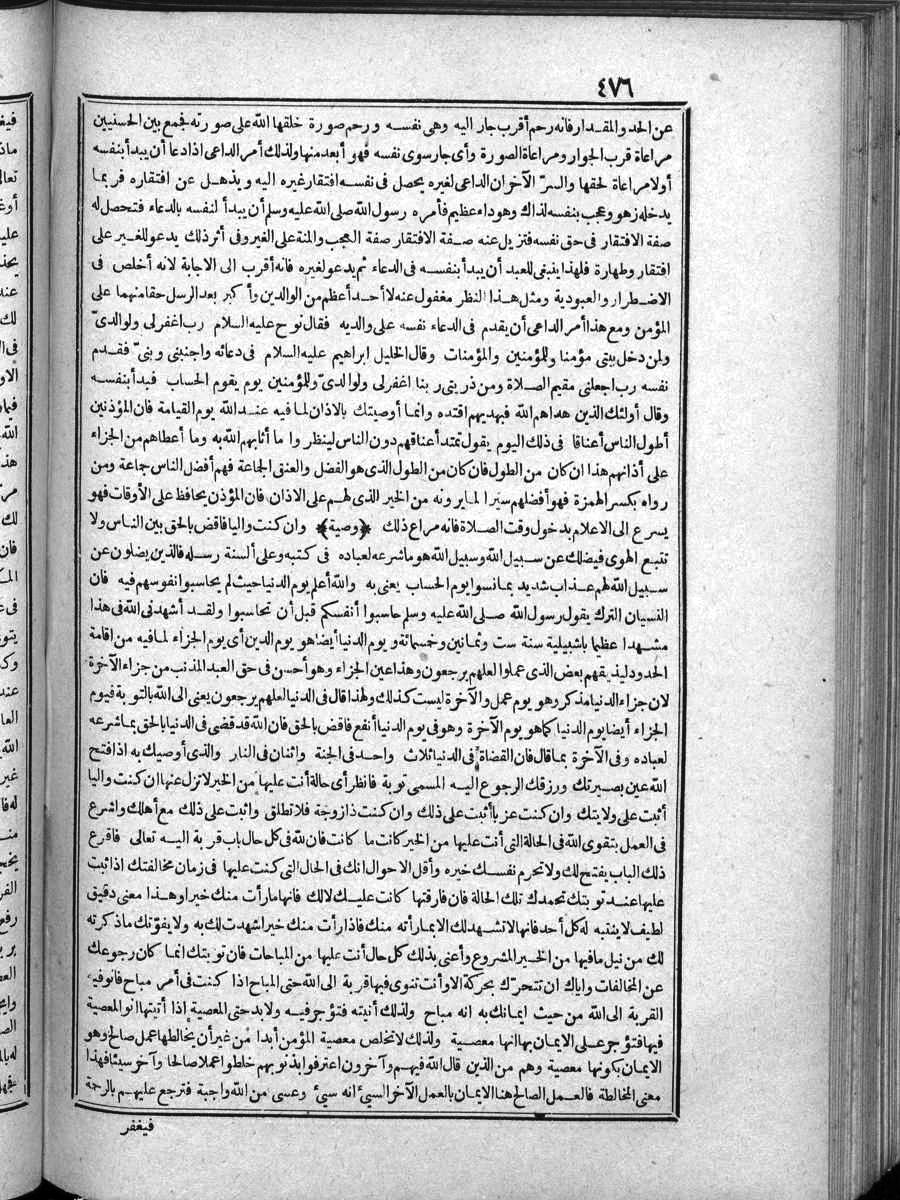 ٤٧٦
عن الحد والمقدار فانه رحم أقرب جار اليه وهى نفسه ورحم صورة خلقها الله على صورته فجمع بين الحسنيين
مراعاة قرب الجوار ومراعاة الصورة وأى جار سوى نفسه فهو أبعد منها ولذلك أمر الداعى اذا دعا أن يبدأ بنفسه
أولا مراعاة لحقها والسرّ الآخر ان الداعى لغيره يحصل فى نفسه افتقار غيره اليه ويذهل عن افتقاره فربما
يدخله زهو وعجب بنفسه لذاك وهو داء عظيم فأمره رسول الله صلى الله عليه وسلم أن يبدأ لنفسه بالدعاء فتحصل له
صفة الافتقار فى حق نفسه فتزيل عنه صفة الافتقار صفة العجب والمنة على الغير وفى أثر ذلك يدعو للغير على
افتقار وطهارة فلهذا ينبغى للعبد أن يبدأ بنفسه فى الدعاء ثم يدعو لغيره فانه أقرب الى الاجابة لانه أخلص فى
الاضطرار والعبودية ومثل هذا النظر مغفول عنه لا أحد أعظم من الوالدين وأكبر بعد الرسل حقا منهما على
المؤمن ومع هذا أمر الداعى أن يقدم فى الدعاء نفسه على والديه فقال نوح عليه السلام رب اغفر لى ولوالدىّ
ولمن دخل بيتى مؤمنا وللمؤمنين والمؤمنات وقال الخليل ابراهيم عليه السلام فى دعائه واجنبنى وبنىّ فقدم
نفسه رب اجعلنى مقيم الصلاة ومن ذريتى ربنا اغفر لى ولوالدىّ وللمؤمنين يوم يقوم الحساب فبدأ بنفسه
وقال أولئك الذين هداهم الله فبهديهم اقتده وانما أوصيتك بالاذان لما فيه عند الله يوم القيامة فان المؤذنين
أطول الناس أعناقا فى ذلك اليوم يقول تمتد أعناقهم دون الناس لينظروا ما أثابهم الله به وما أعطاهم من الجزاء
على أذانهم هذا ان كان من الطول فان كان من الطول الذى هو الفضل والعنق الجاعة فهم أفضل الناس جاعة ومن
رواه بكسر الهمزة فهو أفضلهم سيرا لما يرونه من الخير الذى لهم على الاذان فان المؤذن يحافظ على الأوقات فهو
يسرع الى الاعلام بدخول وقت الصلاة فانه مراع ذلك ﴿وصية﴾ وان كنت واليا فاقض بالحق بين الناس ولا
تتبع الهوى فيضلك عن سبيل الله وسبيل الله هو ما شرعه لعباده فى كتبه وعلى ألسنة رسله فالذين يضلون عن
سبيل الله لهم عذاب شديد بما نسوا يوم الحساب يعنى به والله أعلم يوم الدنيا حيث لم يحاسبوا نفوسهم فيه فان
النسيان الترك يقول رسول الله صلى الله عليه وسلم حاسبوا أنفسكم قبل أن تحاسبوا ولقد أشهدنى الله فى هذا
مشهدا عظيما باشبيلية سنة ست وثمانين وخمسمائة ويوم الدنيا أيضا هو يوم الدين أى يوم الجزاء لما فيه من اقامة
الحدود ليذيقهم بعض الذى عملوا لعلهم يرجعون وهذا عين الجزاء وهو أحسن فى حق العبد المذنب من جزاء الآخرة
لان جزاء الدنيا مذكر وهو يوم عمل والآخرة ليست كذلك ولهذا قال فى الدنيا لعلهم يرجعون يعنى الى الله بالتوبة فيوم
الجزاء أيضا يوم الدنيا كما هو يوم الآخرة وهو فى يوم الدنيا أنفع فاقض بالحق فان الله قد قضى فى الدنيا بالحق بما شرعه
لعباده وفى الآخرة بما قال فان القضاة فى الدنيا ثلاث واحد فى الجنة واثنان فى النار والذى أوصيك به اذا فتح
الله عين بصيرتك ورزقك الرجوع اليه المسمى توبة فانظر أى حالة أنت عليها من الخير لا تزل عنها ان كنت واليا
أثبت على ولايتك وان كنت عزبا أثبت على ذلك وان كنت ذا زوجة فلا تطلق واثبت على ذلك مع أهلك واشرع
فى العمل بتقوى الله فى الحالة التى أنت عليها من الخير كانت ما كانت فان لله فى كل حال باب قربة اليه تعالى فاقرع
ذلك الباب يفتح لك ولا تحرم نفسك خيره وأقل الاحوال انك فى الحال التى كنت عليها فى زمان مخالفتك اذا ثبت
عليها عند توبتك تحمدك تلك الحالة فان فارقتها كانت عليك لا لك فانها ما رأت منك خيرا وهذا معنى دقيق
لطيف لا ينتبه له كل أحد فانها لا تشهد لك الا بما رأته منك فاذا رأت منك خيرا شهدت لك به ولا يفوتنك ما ذكرته
لك من نيل ما فيها من الخير المشروع وأعنى بذلك كل حال أنت عليها من المباحات فان توبتك انما كان رجوعك
عن المخالفات واياك ان تتحرّك بحركة الا وأنت تنوى فيها قربة الى الله حتى المباح اذا كنت فى أمر مباح فانو فيه
القربة الى الله من حيث ايمانك به انه مباح ولذلك أتيته فتؤجر فيه ولا بد حتى المعصية اذا أتيتها انو المعصية
فيها فتؤجر على الايمان بها انها معصية ولذلك لا تخلص معصية المؤمن أبدا من غير أن يخالطها عمل صالح وهو
الايمان بكونها معصية وهم من الذين قال الله فيهم وآخرون اعترفوا بذنوبهم خلطوا عملا صالحا وآخر سيئا فهذا
معنى المخالطة فالعمل الصالح هنا الايمان بالعمل الآخر السيئ انه سيئ وعسى من الله واجبة فترجع عليهم بالرحمة
فيغفر